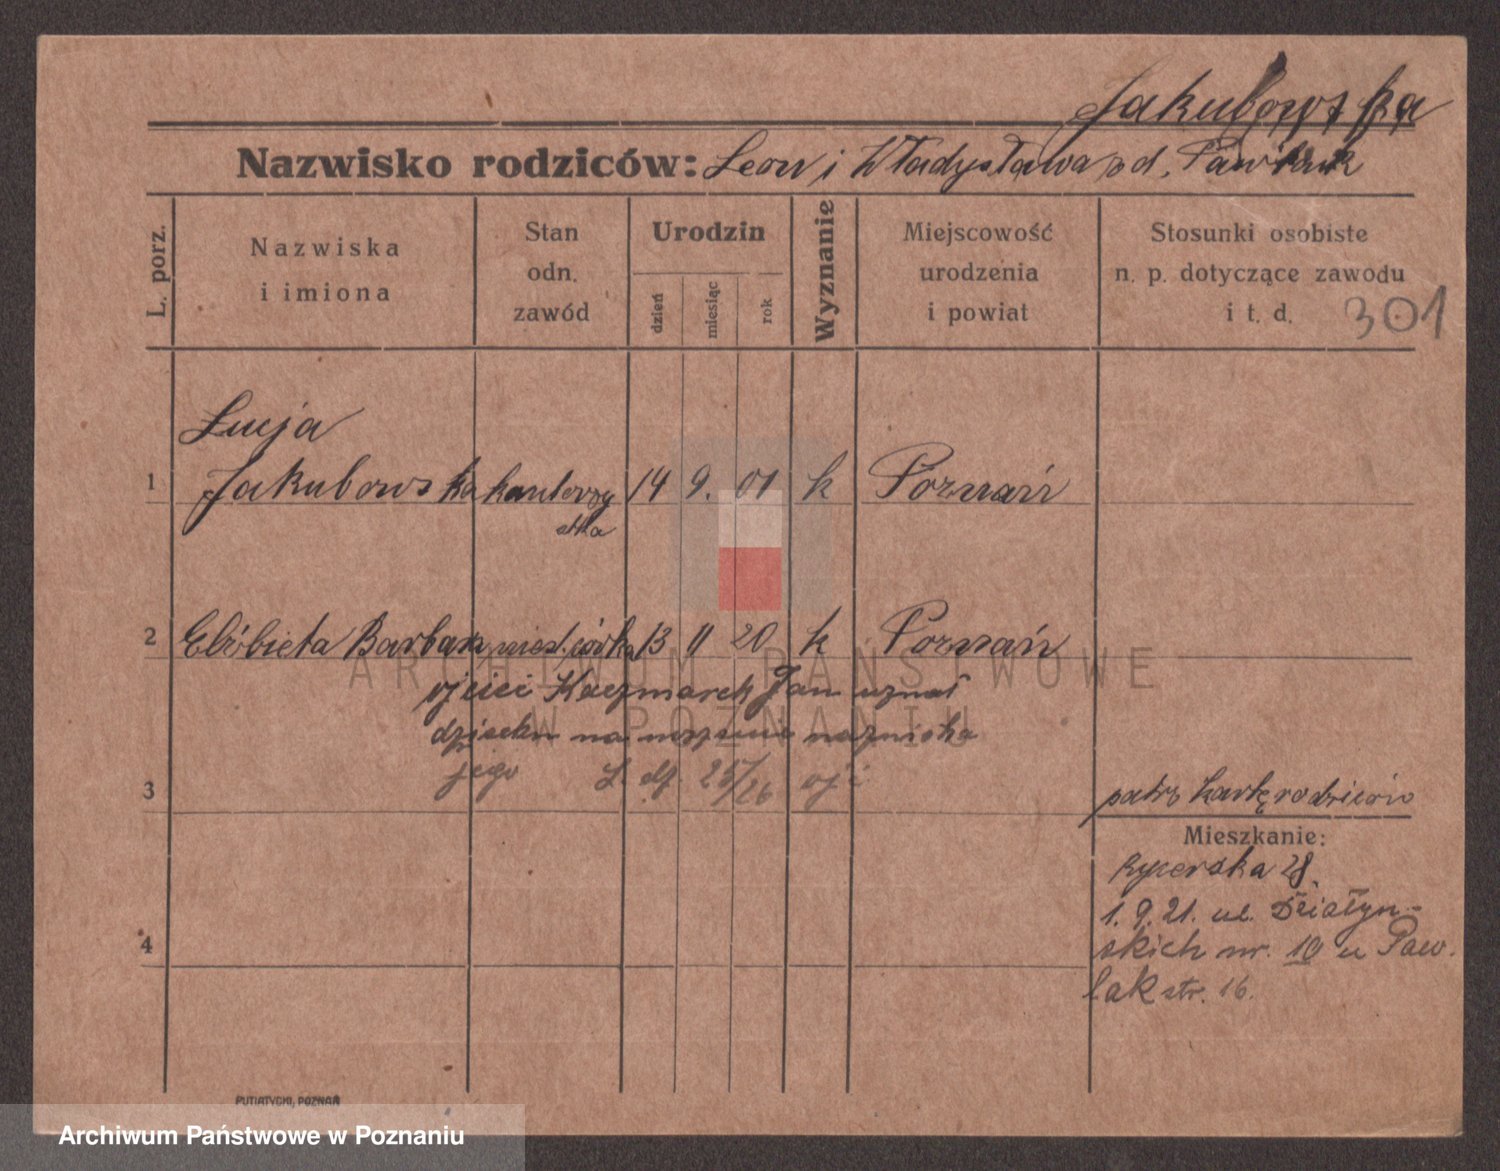 Jakubowska
Nazwisko rodziców: Leon i Władysława od. Pawlak
L. porz.
Nazwiska
i imiona
Stan
odn.
zawód
Urodzin
dzień
miesiąc
rok
Wyznanie
Miejscowość
urodzenia
i powiat
Stosunki osobiste
n. p. dotyczące zawodu
i t. d.
301
Łucja
1 Jakubowska kantorzy 14 9. 01 k Poznań
stka
2 Elżbieta Barbara nieśl. córka 13 11 20 k Poznań
ojciec Kaczmarek Jan uznał
dziecko na nazwiska
jego L. dz. 25/26
3
patrz kartę rodziców
Mieszkanie:
Rycerska 28.
1.9.21. ul. Działyń-
4
skich nr. 10 u Paw.
lak str. 16.
PUTIATYCKI, POZNAŃ
ARCHIWUM PAŃSTWOWE
W POZNANIU
Archiwum Państwowe w Poznaniu